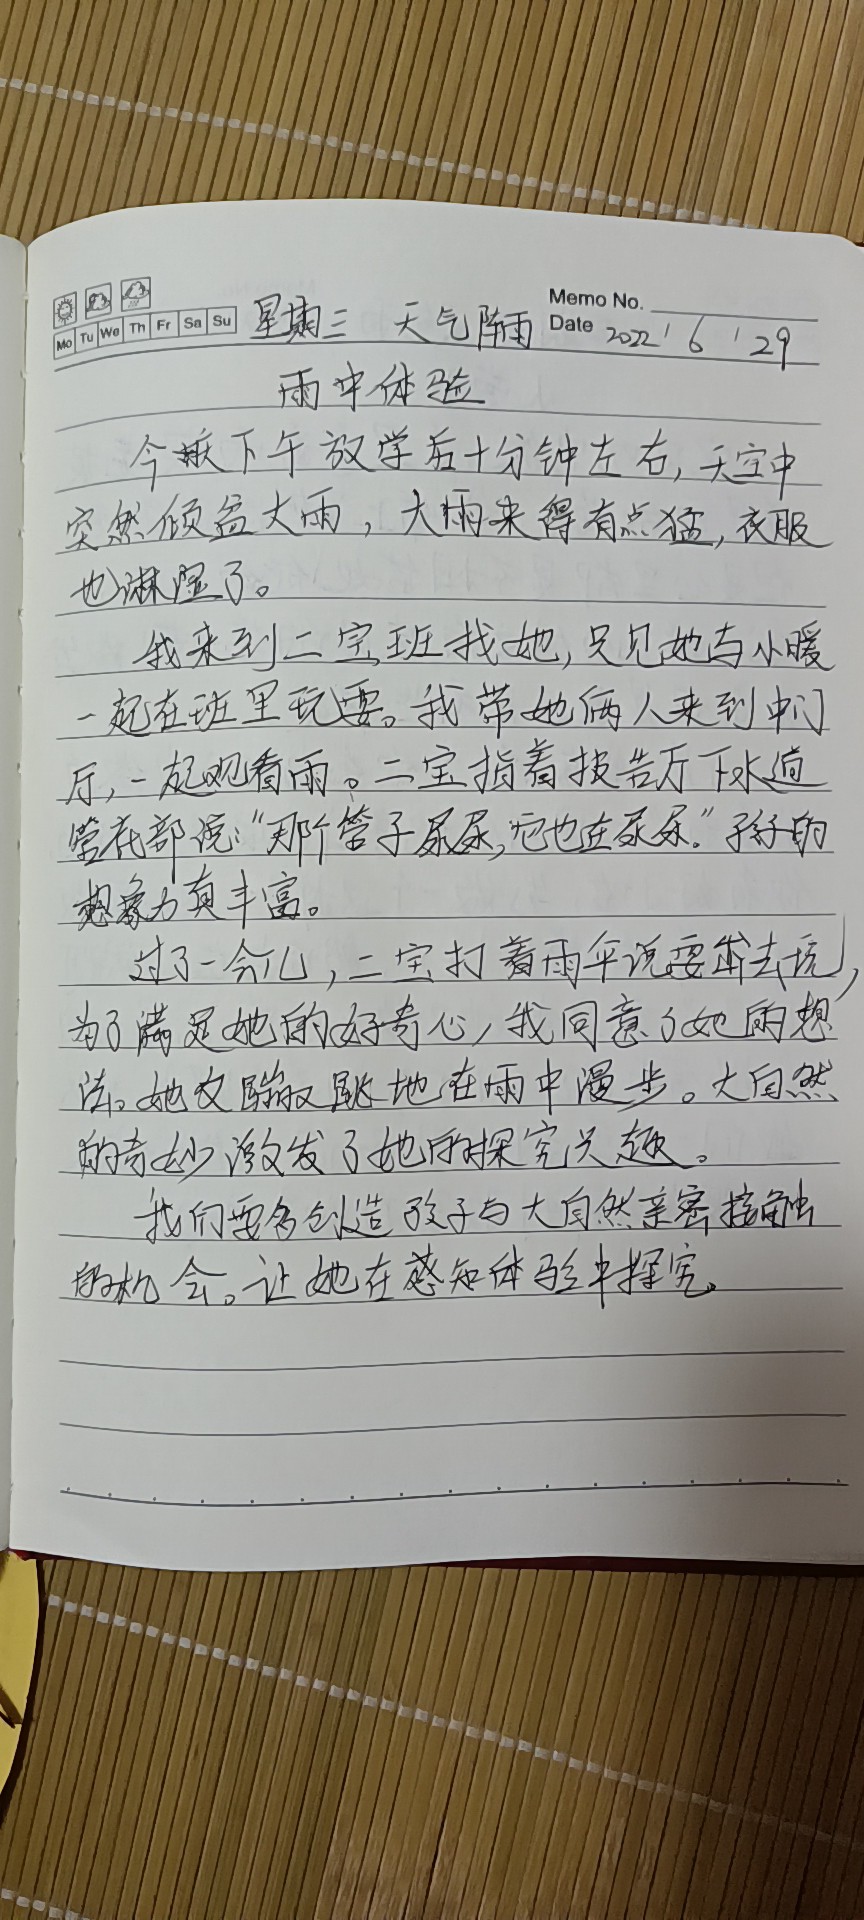 Memo No.
Mo Tu We Th Fr Sa Su 星期三 天气阵雨 Date 2022 ' 6 ' 29
雨中体验
今天下午放学后十分钟左右,天空中
突然倾盆大雨,大雨来得有点猛,衣服
也淋湿了。
我来到二宝班找她,只见她与小暖
一起在班里玩耍。我带她俩人来到中门
厅,一起观看雨。二宝指着报告厅下水道
管底部说:“那个管子尿尿,它也在尿尿.”孩子的
想象力真丰富。
过了一会儿,二宝打着雨伞说要出去玩,
为了满足她的好奇心,我同意了她的想
法。她又蹦又跳地在雨中漫步。大自然
的奇妙激发了她的探究兴趣。
我们要多创造孩子与大自然亲密接触
的机会。让她在感知体验中探究。